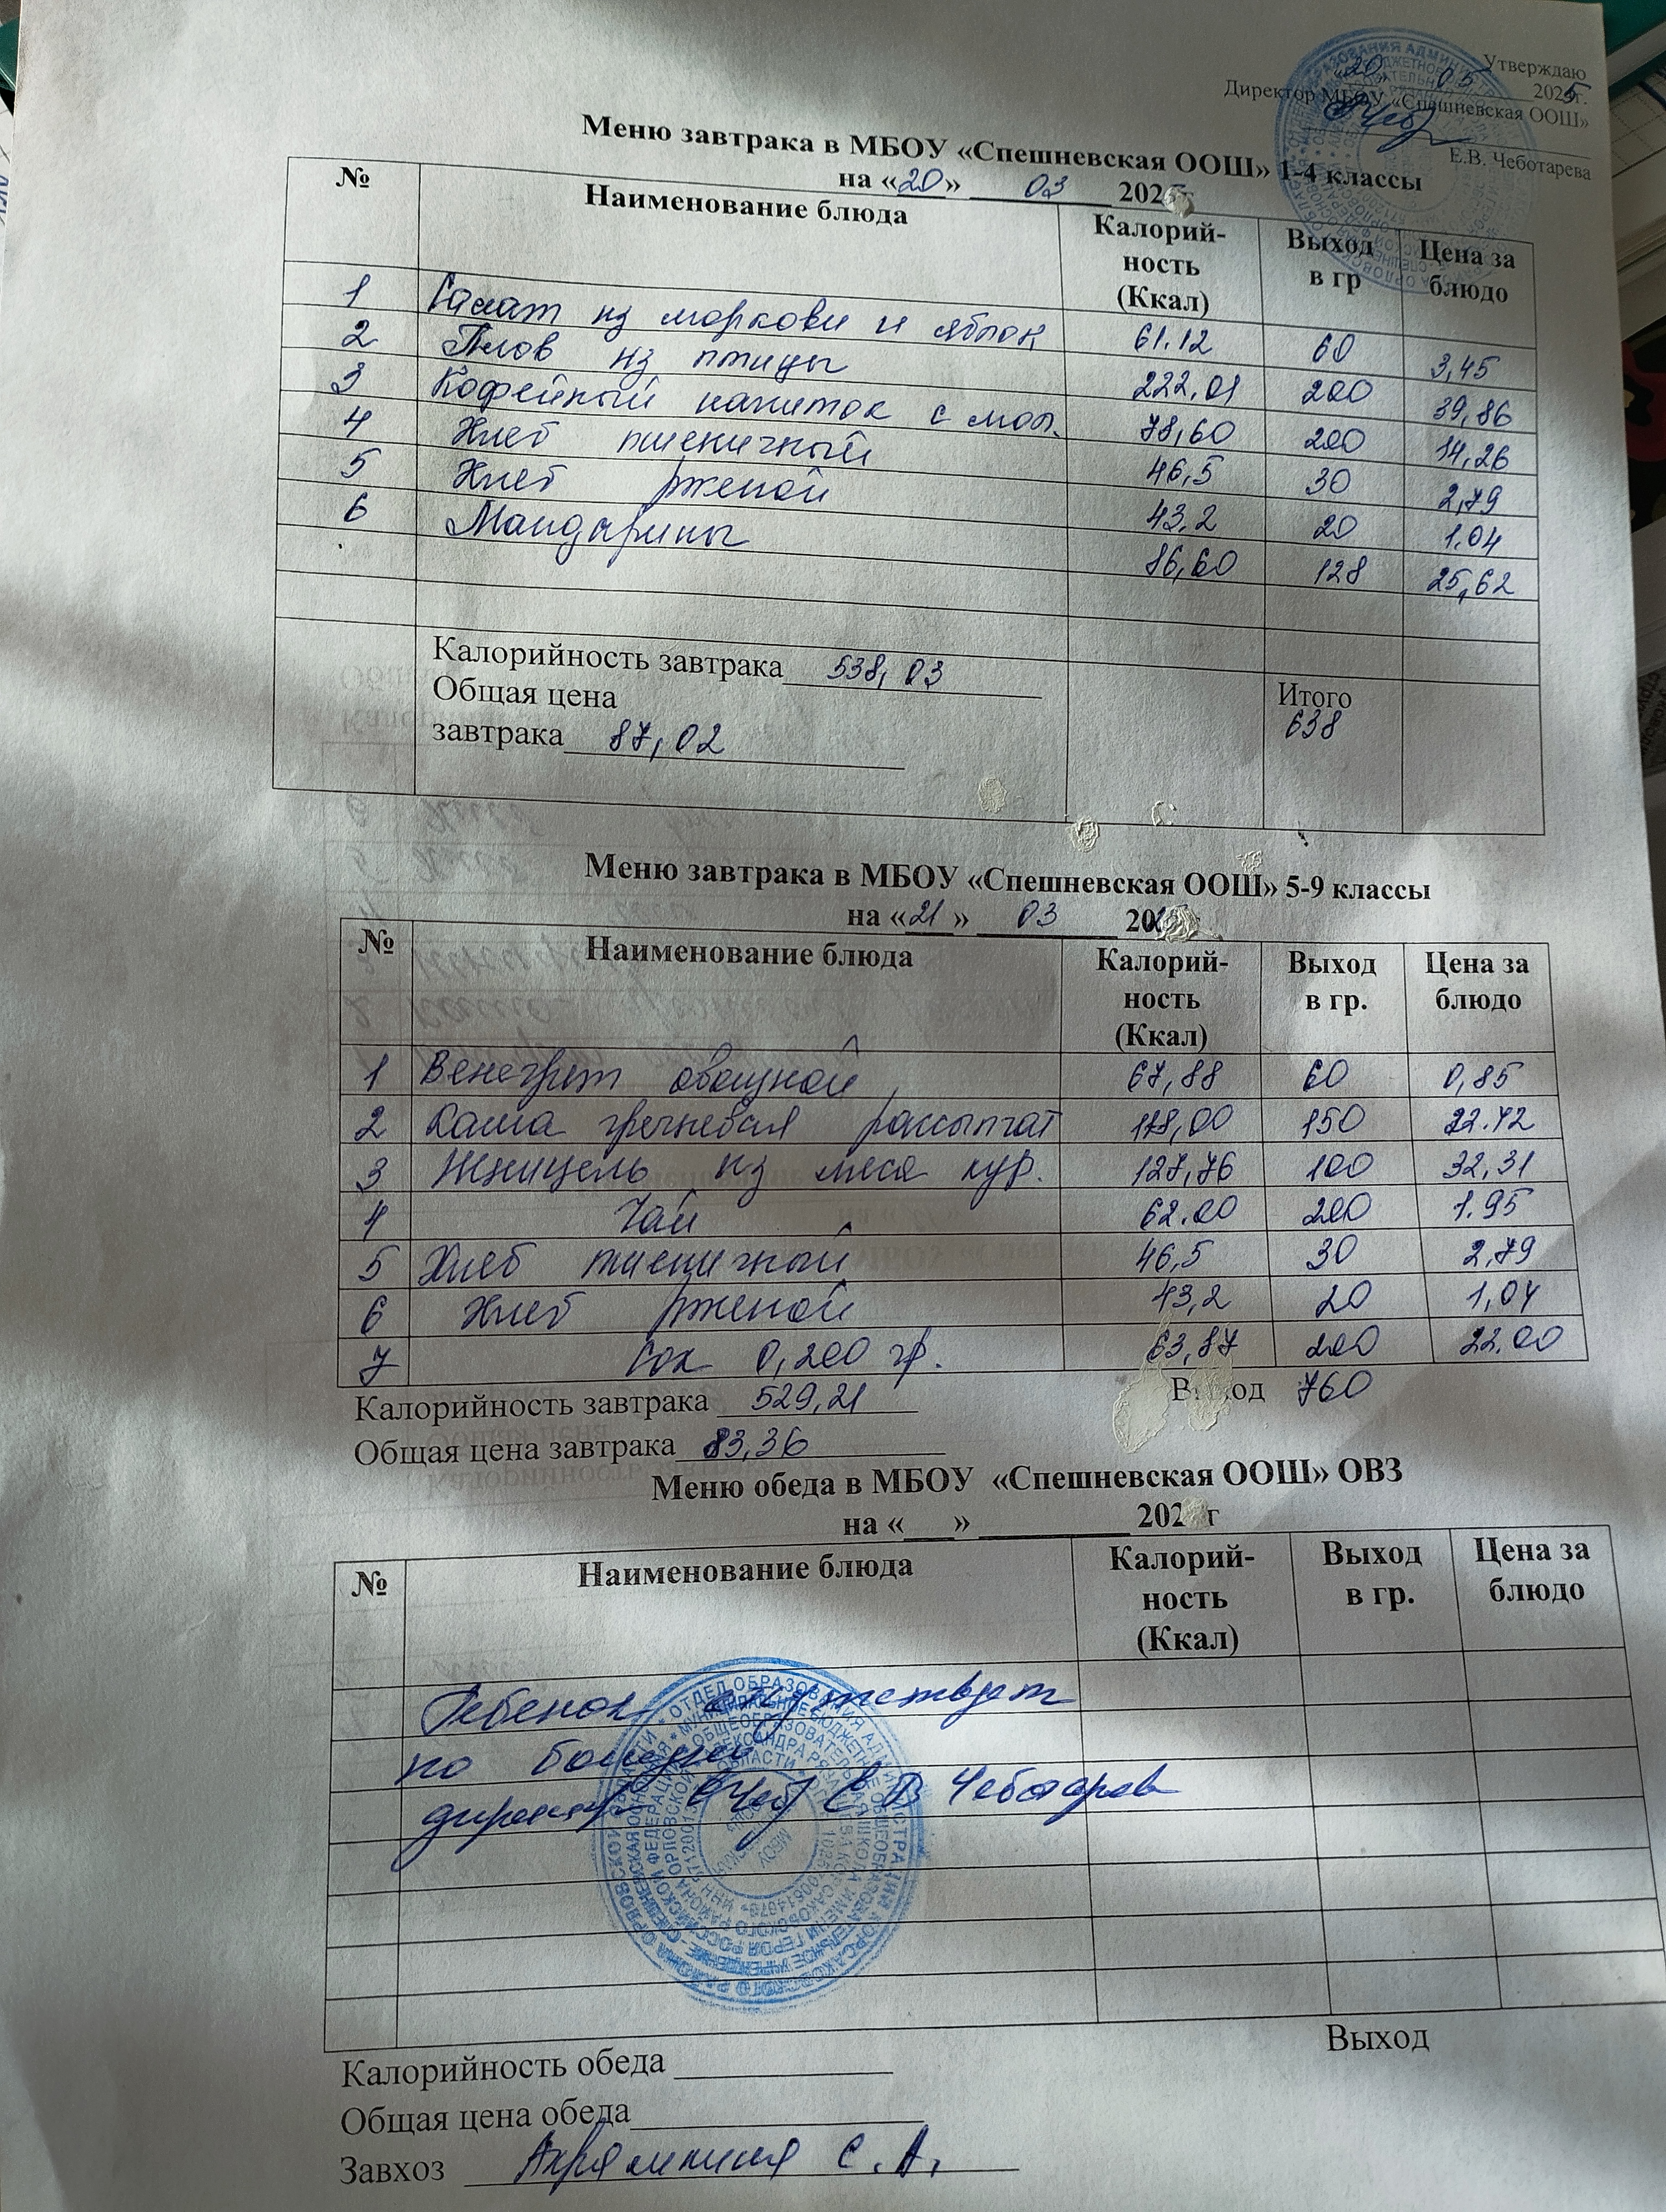 Утверждаю
«20» 05 2025г.
Директор МБОУ «Спешневская ООШ»
Е.В. Чеботарева
Меню завтрака в МБОУ «Спешневская ООШ» 1-4 классы
на «20» 03 2025г
№ Наименование блюда Калорий-ность (Ккал) Выход в гр Цена за блюдо
1 Салат из моркови и яблок 61.12 60 3,45
2 Плов из птицы 222,01 200 39,86
3 Кофейный напиток с мол. 78,60 200 14,26
4 Хлеб пшеничный 46,5 30 2,79
5 Хлеб ржаной 43,2 20 1.04
6 Мандарины 86,60 128 25,62
Калорийность завтрака 538,03
Общая цена
завтрака 87,02
Итого
638
Меню завтрака в МБОУ «Спешневская ООШ» 5-9 классы
на «21» 03 202
№ Наименование блюда Калорий-ность (Ккал) Выход в гр. Цена за блюдо
1 Венегрет овощной 67,88 60 0,85
2 Каша гречневая рассыпчат 118,00 150 22.42
3 Шницель из мяса кур. 127,76 100 32,31
4 Чай 62.00 200 1.95
5 Хлеб пшеничный 46,5 30 2,79
6 Хлеб ржаной 43,2 20 1,04
7 Сок 0,200 гр. 63,87 200 22.00
Калорийность завтрака 529,21 Выход 760
Общая цена завтрака 83,36
Меню обеда в МБОУ «Спешневская ООШ» ОВЗ
на «___» 202 г
№ Наименование блюда Калорий-ность (Ккал) Выход в гр. Цена за блюдо
Ребенок отсутствует
по болезни
директор Е В Чеботарева
Выход
Калорийность обеда
Общая цена обеда
Завхоз С.А.